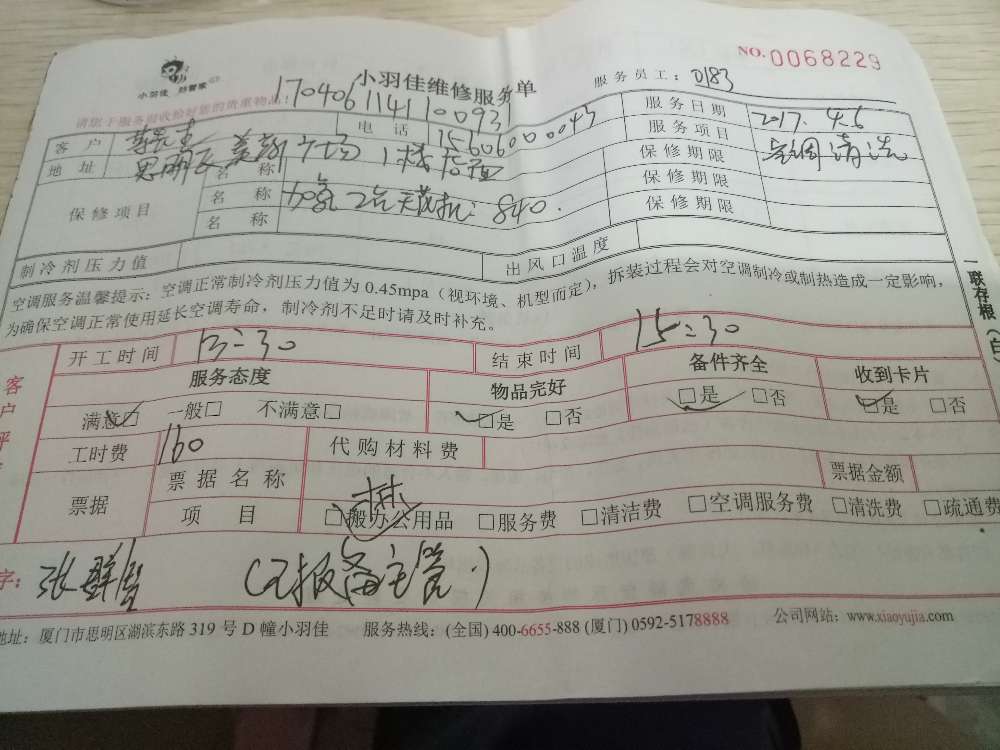 NO.0068229
小羽佳 好管家
小羽佳维修服务单
服务员工：0183
请您于服务前收检好您的贵重物品！
1704061141100931
客户 电话 15606000043 服务日期 2017.4.6
地址 思明区 广场1楼 服务项目 空调清洗
保修项目 名称 保修期限
名称 加氟2台天花机 840. 保修期限
名称 保修期限
制冷剂压力值 出风口温度
空调服务温馨提示：空调正常制冷剂压力值为 0.45mpa（视环境、机型而定），拆装过程会对空调制冷或制热造成一定影响，
为确保空调正常使用延长空调寿命，制冷剂不足时请及时补充。
一联存根（白
开工时间 13:30 结束时间 15:30
客户评
服务态度 物品完好 备件齐全 收到卡片
满意□ 一般□ 不满意□ □是 □否 □是 □否 □是 □否
工时费 160 代购材料费
票据 票据名称 票据金额
项目 □搬办公用品 □服务费 □清洁费 □空调服务费 □清洗费 □疏通费
字：张群 （已报备主管.）
地址：厦门市思明区湖滨东路 319 号 D 幢小羽佳 服务热线：(全国) 400-6655-888 (厦门) 0592-5178888 公司网站：www.xiaoyujia.com